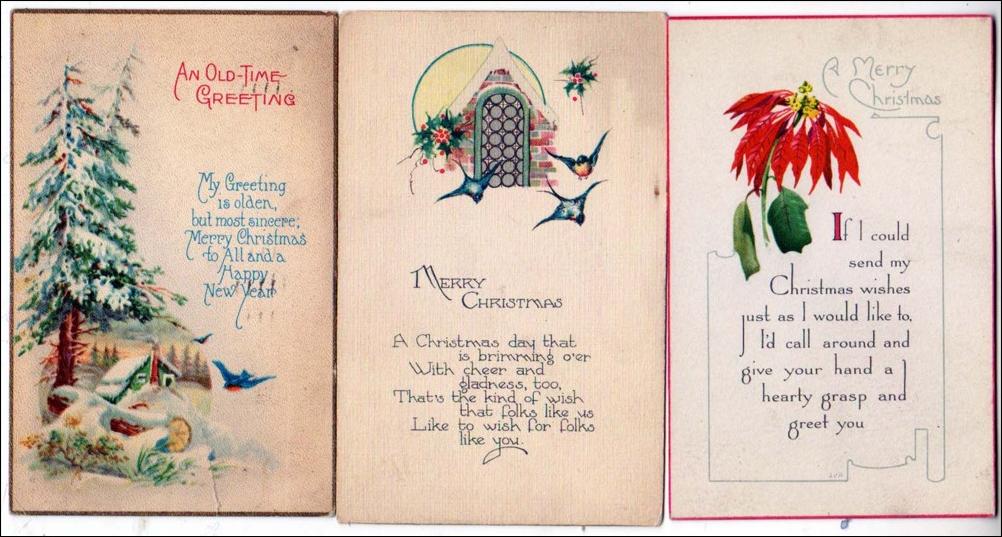 An Old-Time
Greeting
My Greeting
is olden,
but most sincere;
Merry Christmas
to All and a
Happy
New Year
Merry
Christmas
A Christmas day that
is brimming o'er
With cheer and
gladness, too,
That's the kind of wish
that folks like us
Like to wish for folks
like you.
A Merry
Christmas
If I could
send my
Christmas wishes
just as I would like to,
I'd call around and
give your hand a
hearty grasp and
greet you